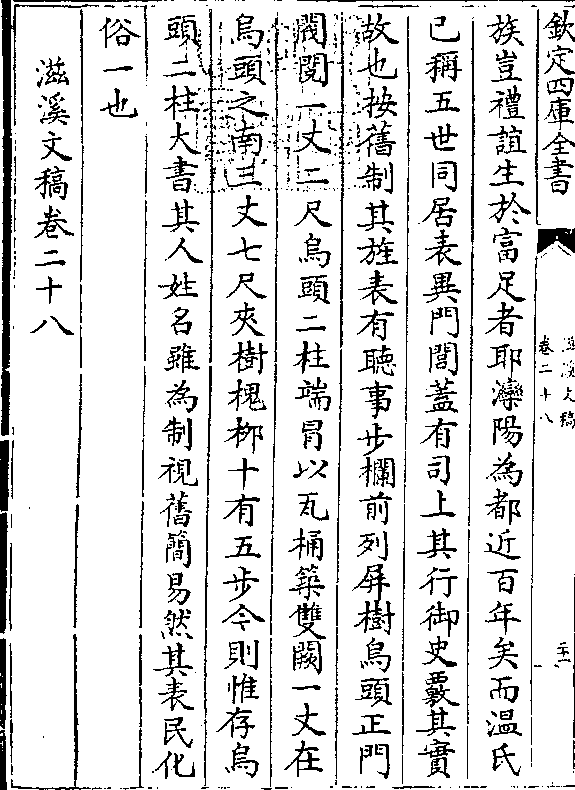 欽定四庫全書
滋溪文稿
卷二十八
二十一
族豈禮誼生於富足者耶灤陽為都近百年矣而温氏
已稱五世同居表異門閭蓋有司上其行御史覈其實
故也按舊制其旌表有聽事步欄前列屏樹烏頭正門
閥閲一丈二尺烏頭二柱端冒以瓦桶築雙闕一丈在
烏頭之南三丈七尺夾樹槐栁十有五步今則惟存烏
頭二柱大書其人姓名雖為制視舊簡易然其表民化
俗一也
滋溪文稿卷二十八